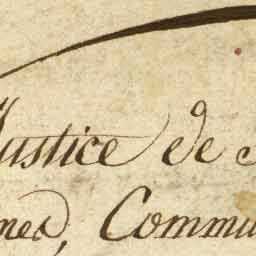 Justice de
Commu